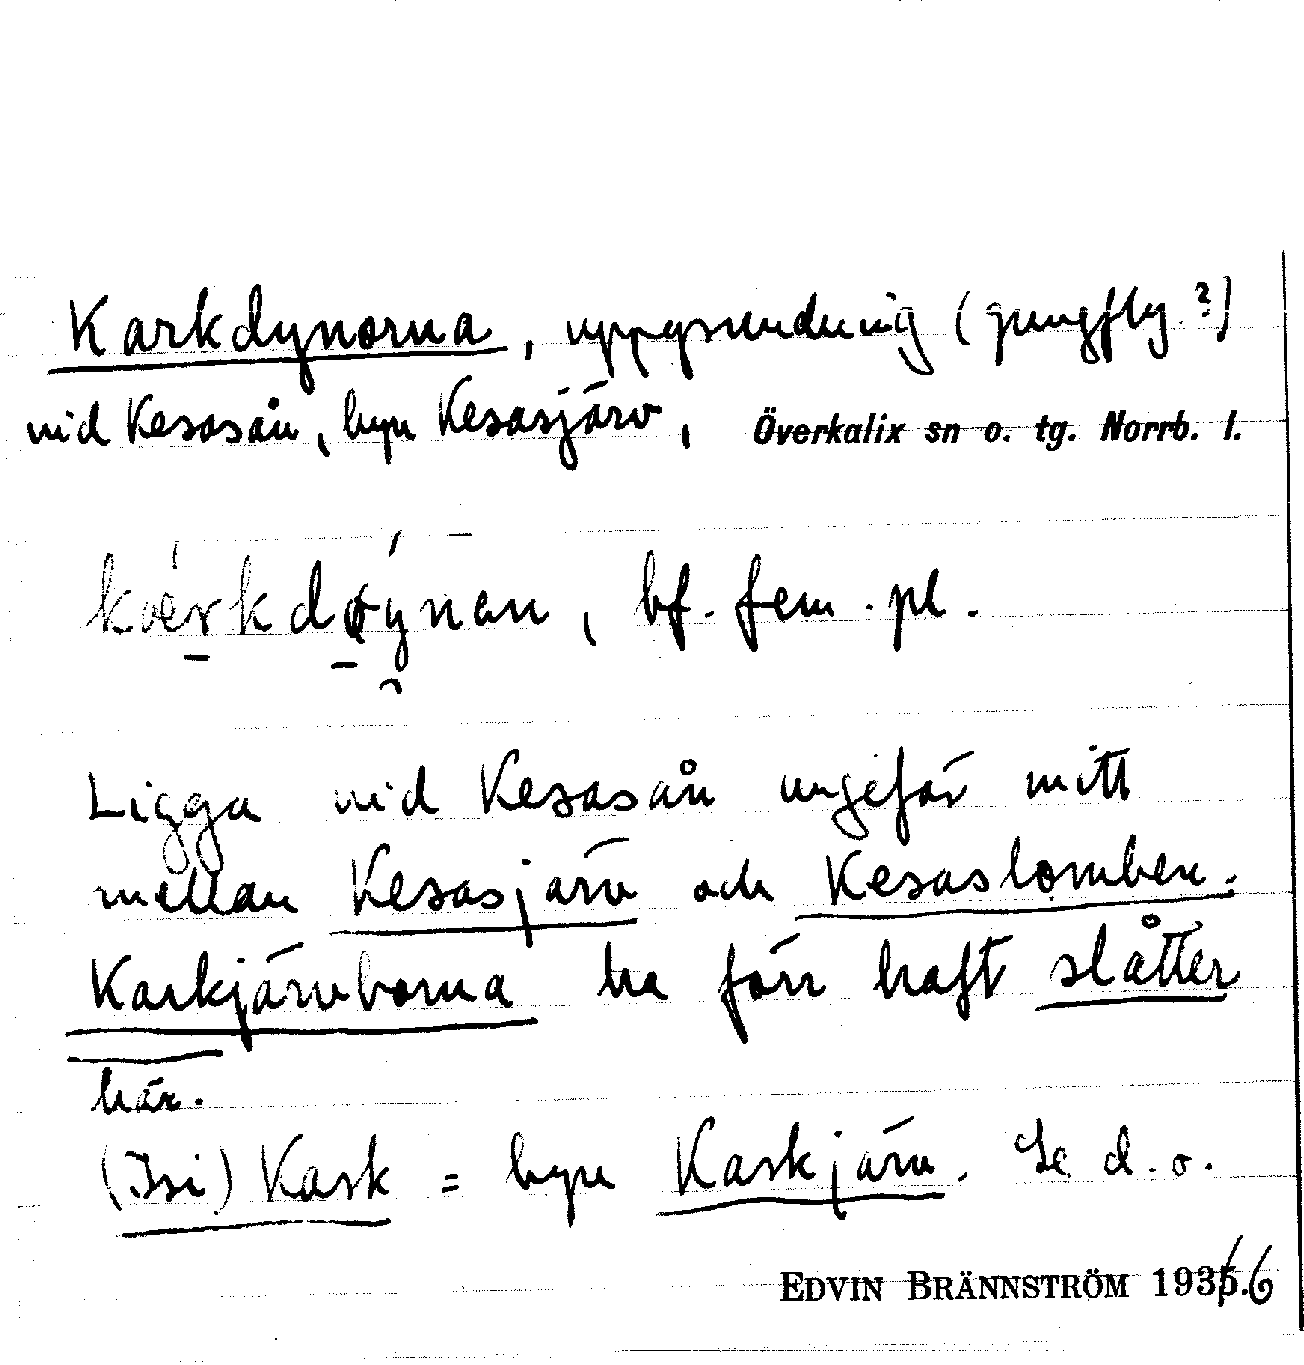 Karkdynorna, uppgrundning (gungfly?)
vid Kesasån, byn Kesasjärv, Överkalix sn o. tg. Norrb. l.
bf. fem. pl.
Ligga vid Kesasån ungefär mitt
mellan Kesasjärv och Kesaslomben.
Karkjärvborna ha förr haft slåtter
här.
(Isi) Kark = byn Karkjärv. Se d. o.
EDVIN BRÄNNSTRÖM 1935.6